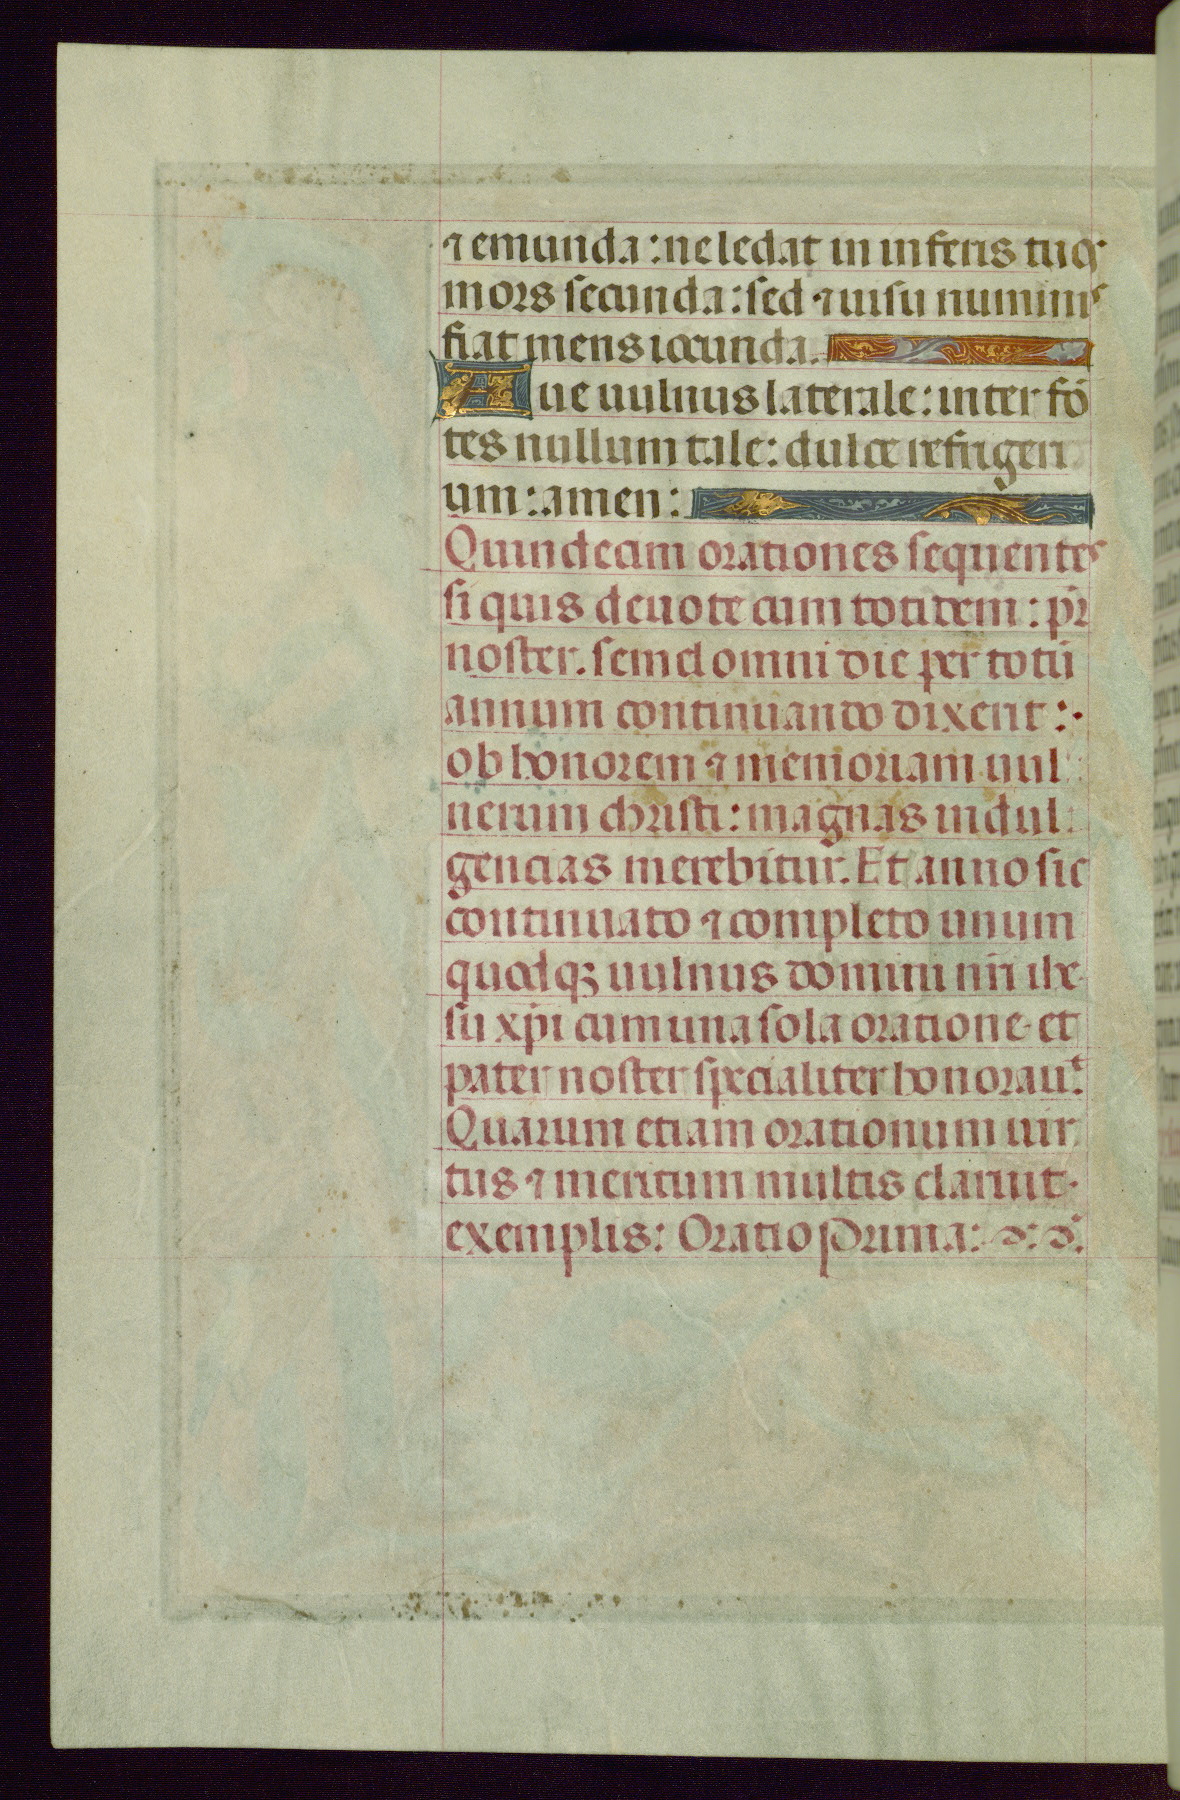 ⁊ emunda: ne ledat in inferis tuos
mors secunda: sed ⁊ uisu numinis
fiat mens iocunda.
Aue uulnus laterale: inter fō
tes nullum tale: dulce refrigeri
um: amen:
Quindecim orationes sequentes
si quis deuote cum totitem: pr̄
noster. semel omni die per totū
annum continuando dixerit:·
ob honorem ⁊ memoriam uul
nerum christi: magnas indul
gencias merebitur. Et anno sic
continuato ⁊ completo unum
quodqꝫ uulnus domini nr̄i ihe
su xp̄i cum una sola oratione et
pater noster specialiter honorauit
Quarum etiam orationum uir
tus ⁊ meritum multis claruit·
exemplis: Oratio Prima: